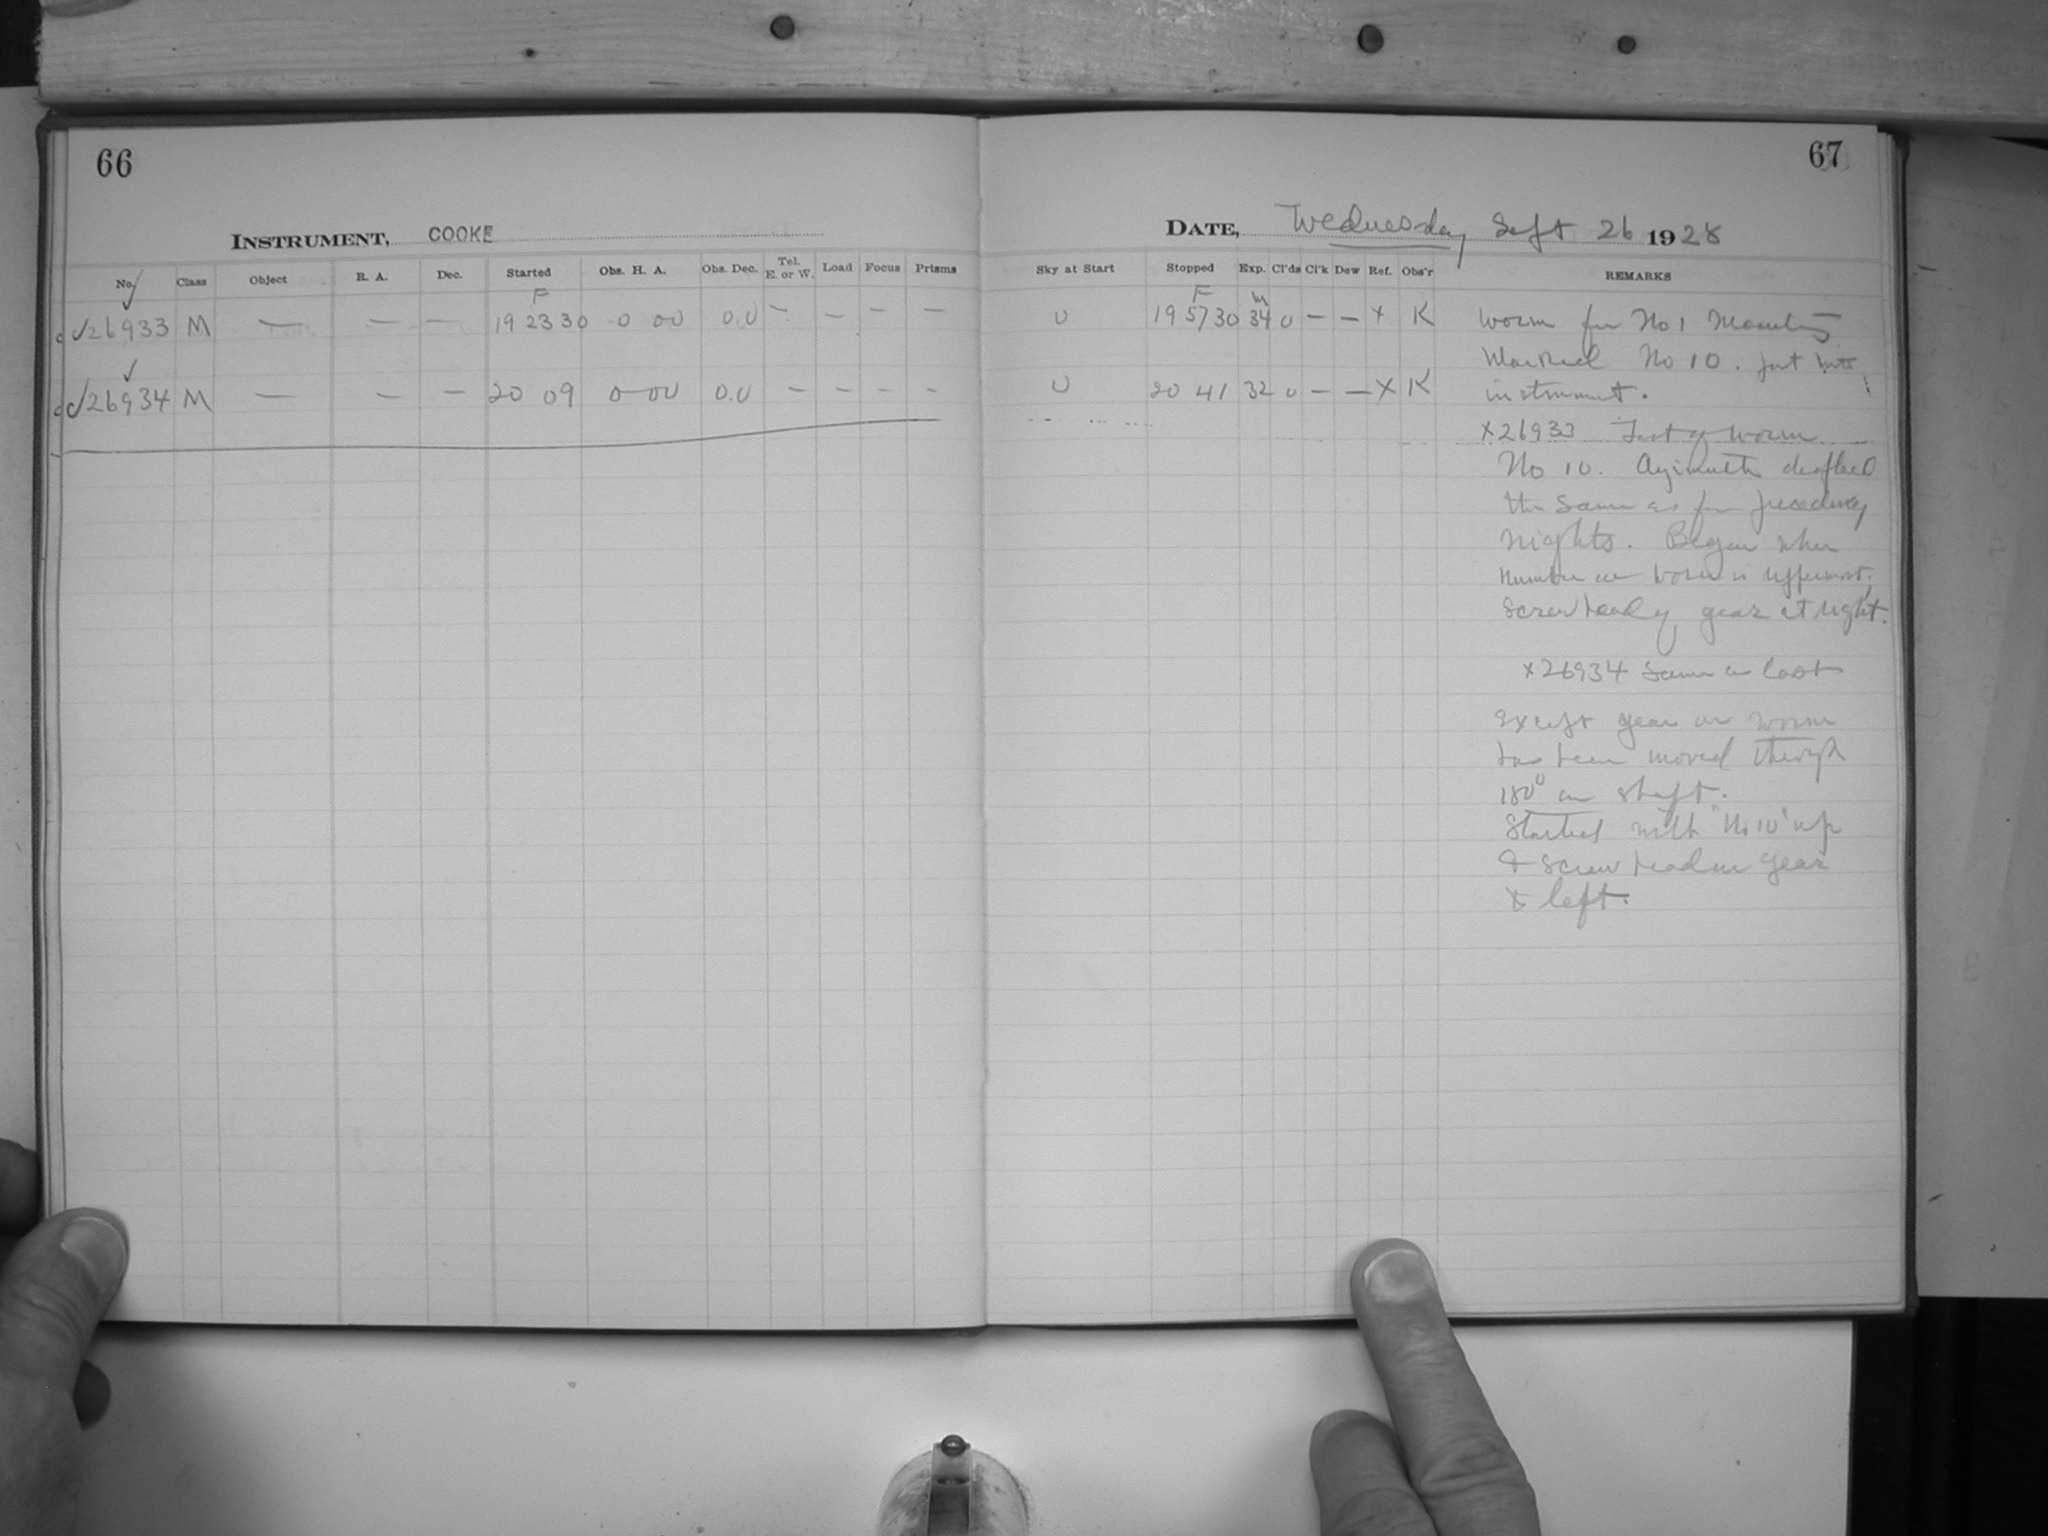 66
INSTRUMENT, COOKE
No. Class Object R. A. Dec. Started Obs. H. A. Obs. Dec. Tel. E. or W. Load Focus Prisms
F
26933 M — — — 19 23 30 0 00 0.0 — — — —
26934 M — — — 20 09 0 00 0.0 — — — —
67
DATE, Wednesday Sept 26 1928
Sky at Start Stopped Exp. Cl'ds Cl'k Dew Ref. Obs'r REMARKS
F m
0 19 57 30 34 0 — — x K
0 20 41 32 0 — — x K
Worm for No 1 Mounting
Marked No 10. put into
instrument.
x26933 Test of Worm
No 10. Azimuth deflected
the same as for preceding
nights. Began when
number on worm is uppermost,
screw head of gear at right.
x26934 Same as last
Except gear on worm
has been moved through
180° on shaft.
Started with "No 10" up
& screw head on gear
to left.